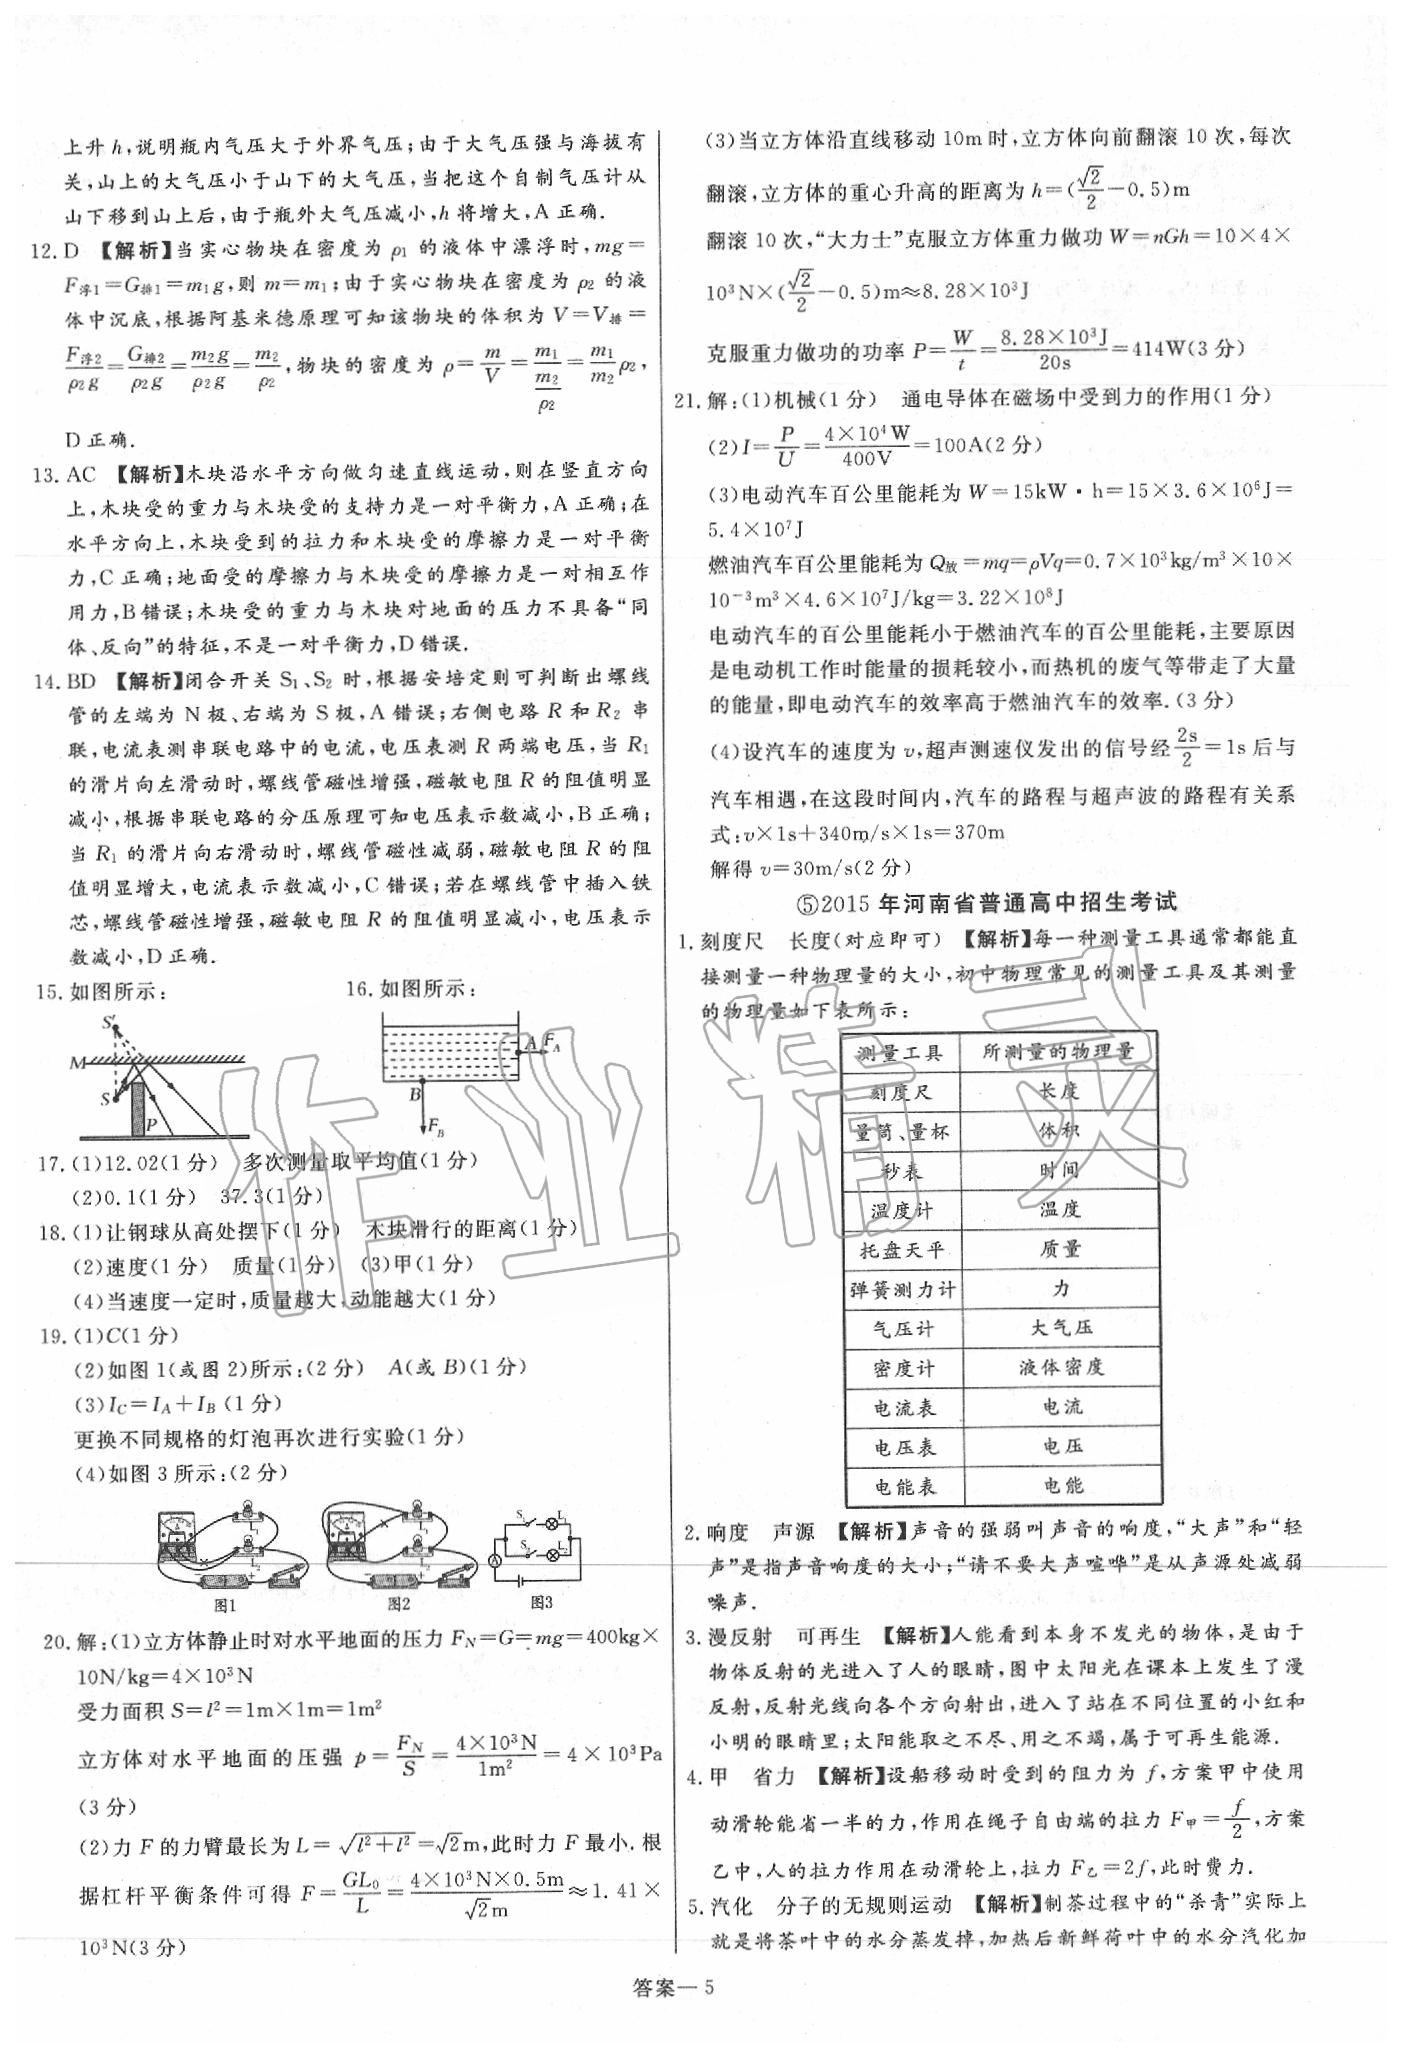 上升 h,说明瓶内气压大于外界气压;由于大气压强与海拔有
关,山上的大气压小于山下的大气压,当把这个自制气压计从
山下移到山上后,由于瓶外大气压减小,h 将增大,A 正确.
12. D 【解析】当实心物块在密度为 ρ1 的液体中漂浮时,mg=
F浮1=G排1=m1g,则 m=m1;由于实心物块在密度为 ρ2 的液
体中沉底,根据阿基米德原理可知该物块的体积为 V=V排=
F浮2/ρ2g=G排2/ρ2g=m2g/ρ2g=m2/ρ2,物块的密度为 ρ=m/V=m1/(m2/ρ2)=m1/m2 ρ2,
D 正确.
13. AC 【解析】木块沿水平方向做匀速直线运动,则在竖直方向
上,木块受的重力与木块受的支持力是一对平衡力,A 正确;在
水平方向上,木块受到的拉力和木块受的摩擦力是一对平衡
力,C 正确;地面受的摩擦力与木块受的摩擦力是一对相互作
用力,B 错误;木块受的重力与木块对地面的压力不具备“同
体、反向”的特征,不是一对平衡力,D 错误.
14. BD 【解析】闭合开关 S1、S2 时,根据安培定则可判断出螺线
管的左端为 N 极、右端为 S 极,A 错误;右侧电路 R 和 R2 串
联,电流表测串联电路中的电流,电压表测 R 两端电压,当 R1
的滑片向左滑动时,螺线管磁性增强,磁敏电阻 R 的阻值明显
减小,根据串联电路的分压原理可知电压表示数减小,B 正确;
当 R1 的滑片向右滑动时,螺线管磁性减弱,磁敏电阻 R 的阻
值明显增大,电流表示数减小,C 错误;若在螺线管中插入铁
芯,螺线管磁性增强,磁敏电阻 R 的阻值明显减小,电压表示
数减小,D 正确.
15. 如图所示: 16. 如图所示:
S′
M
S
P
A FA
B
FB
17. (1)12.02(1 分) 多次测量取平均值(1 分)
(2)0.1(1 分) 37.3(1 分)
18. (1)让钢球从高处摆下(1 分) 木块滑行的距离(1 分)
(2)速度(1 分) 质量(1 分) (3)甲(1 分)
(4)当速度一定时,质量越大,动能越大(1 分)
19. (1)C(1 分)
(2)如图 1(或图 2)所示:(2 分) A(或 B)(1 分)
(3)IC=IA+IB(1 分)
更换不同规格的灯泡再次进行实验(1 分)
(4)如图 3 所示:(2 分)
L1 L1 S1 L1
L2 L2 S2 L2
A
图1 图2 图3
20. 解:(1)立方体静止时对水平地面的压力 FN=G=mg=400kg×
10N/kg=4×10³N
受力面积 S=l²=1m×1m=1m²
立方体对水平地面的压强 p=FN/S=4×10³N/1m²=4×10³Pa
(3 分)
(2)力 F 的力臂最长为 L=√(l²+l²)=√2m,此时力 F 最小.根
据杠杆平衡条件可得 F=GL0/L=4×10³N×0.5m/√2m≈1.41×
10³N(3 分)
(3)当立方体沿直线移动 10m 时,立方体向前翻滚 10 次,每次
翻滚,立方体的重心升高的距离为 h=(√2/2-0.5)m
翻滚 10 次,“大力士”克服立方体重力做功 W=nGh=10×4×
10³N×(√2/2-0.5)m≈8.28×10³J
克服重力做功的功率 P=W/t=8.28×10³J/20s=414W(3 分)
21. 解:(1)机械(1 分) 通电导体在磁场中受到力的作用(1 分)
(2)I=P/U=4×10⁴W/400V=100A(2 分)
(3)电动汽车百公里能耗为 W=15kW·h=15×3.6×10⁶J=
5.4×10⁷J
燃油汽车百公里能耗为 Q放=mq=ρVq=0.7×10³kg/m³×10×
10⁻³m³×4.6×10⁷J/kg=3.22×10⁸J
电动汽车的百公里能耗小于燃油汽车的百公里能耗,主要原因
是电动机工作时能量的损耗较小,而热机的废气等带走了大量
的能量,即电动汽车的效率高于燃油汽车的效率.(3 分)
(4)设汽车的速度为 v,超声测速仪发出的信号经 2s/2=1s 后与
汽车相遇,在这段时间内,汽车的路程与超声波的路程有关系
式:v×1s+340m/s×1s=370m
解得 v=30m/s(2 分)
⑤2015 年河南省普通高中招生考试
1. 刻度尺 长度(对应即可) 【解析】每一种测量工具通常都能直
接测量一种物理量的大小,初中物理常见的测量工具及其测量
的物理量如下表所示:
测量工具 所测量的物理量
刻度尺 长度
量筒、量杯 体积
秒表 时间
温度计 温度
托盘天平 质量
弹簧测力计 力
气压计 大气压
密度计 液体密度
电流表 电流
电压表 电压
电能表 电能
2. 响度 声源 【解析】声音的强弱叫声音的响度,“大声”和“轻
声”是指声音响度的大小;“请不要大声喧哗”是从声源处减弱
噪声.
3. 漫反射 可再生 【解析】人能看到本身不发光的物体,是由于
物体反射的光进入了人的眼睛,图中太阳光在课本上发生了漫
反射,反射光线向各个方向射出,进入了站在不同位置的小红和
小明的眼睛里;太阳能取之不尽、用之不竭,属于可再生能源.
4. 甲 省力 【解析】设船移动时受到的阻力为 f,方案甲中使用
动滑轮能省一半的力,作用在绳子自由端的拉力 F甲=f/2,方案
乙中,人的拉力作用在动滑轮上,拉力 F乙=2f,此时费力.
5. 汽化 分子的无规则运动 【解析】制茶过程中的“杀青”实际上
就是将茶叶中的水分蒸发掉,加热后新鲜荷叶中的水分汽化加
答案— 5
作业精灵